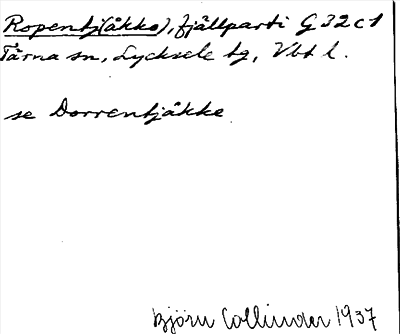 Ropentj(åkko), fjällparti G 32 c 1
Tärna sn, Lycksele tg, Vbt l.
se Dorrentjåkke
Björn Collinder 1937